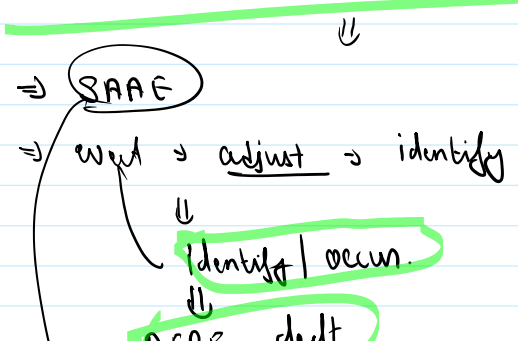 ⇓
⇒ SAAE
⇒ event → adjust → identify
⇓
identify | occur.
⇓